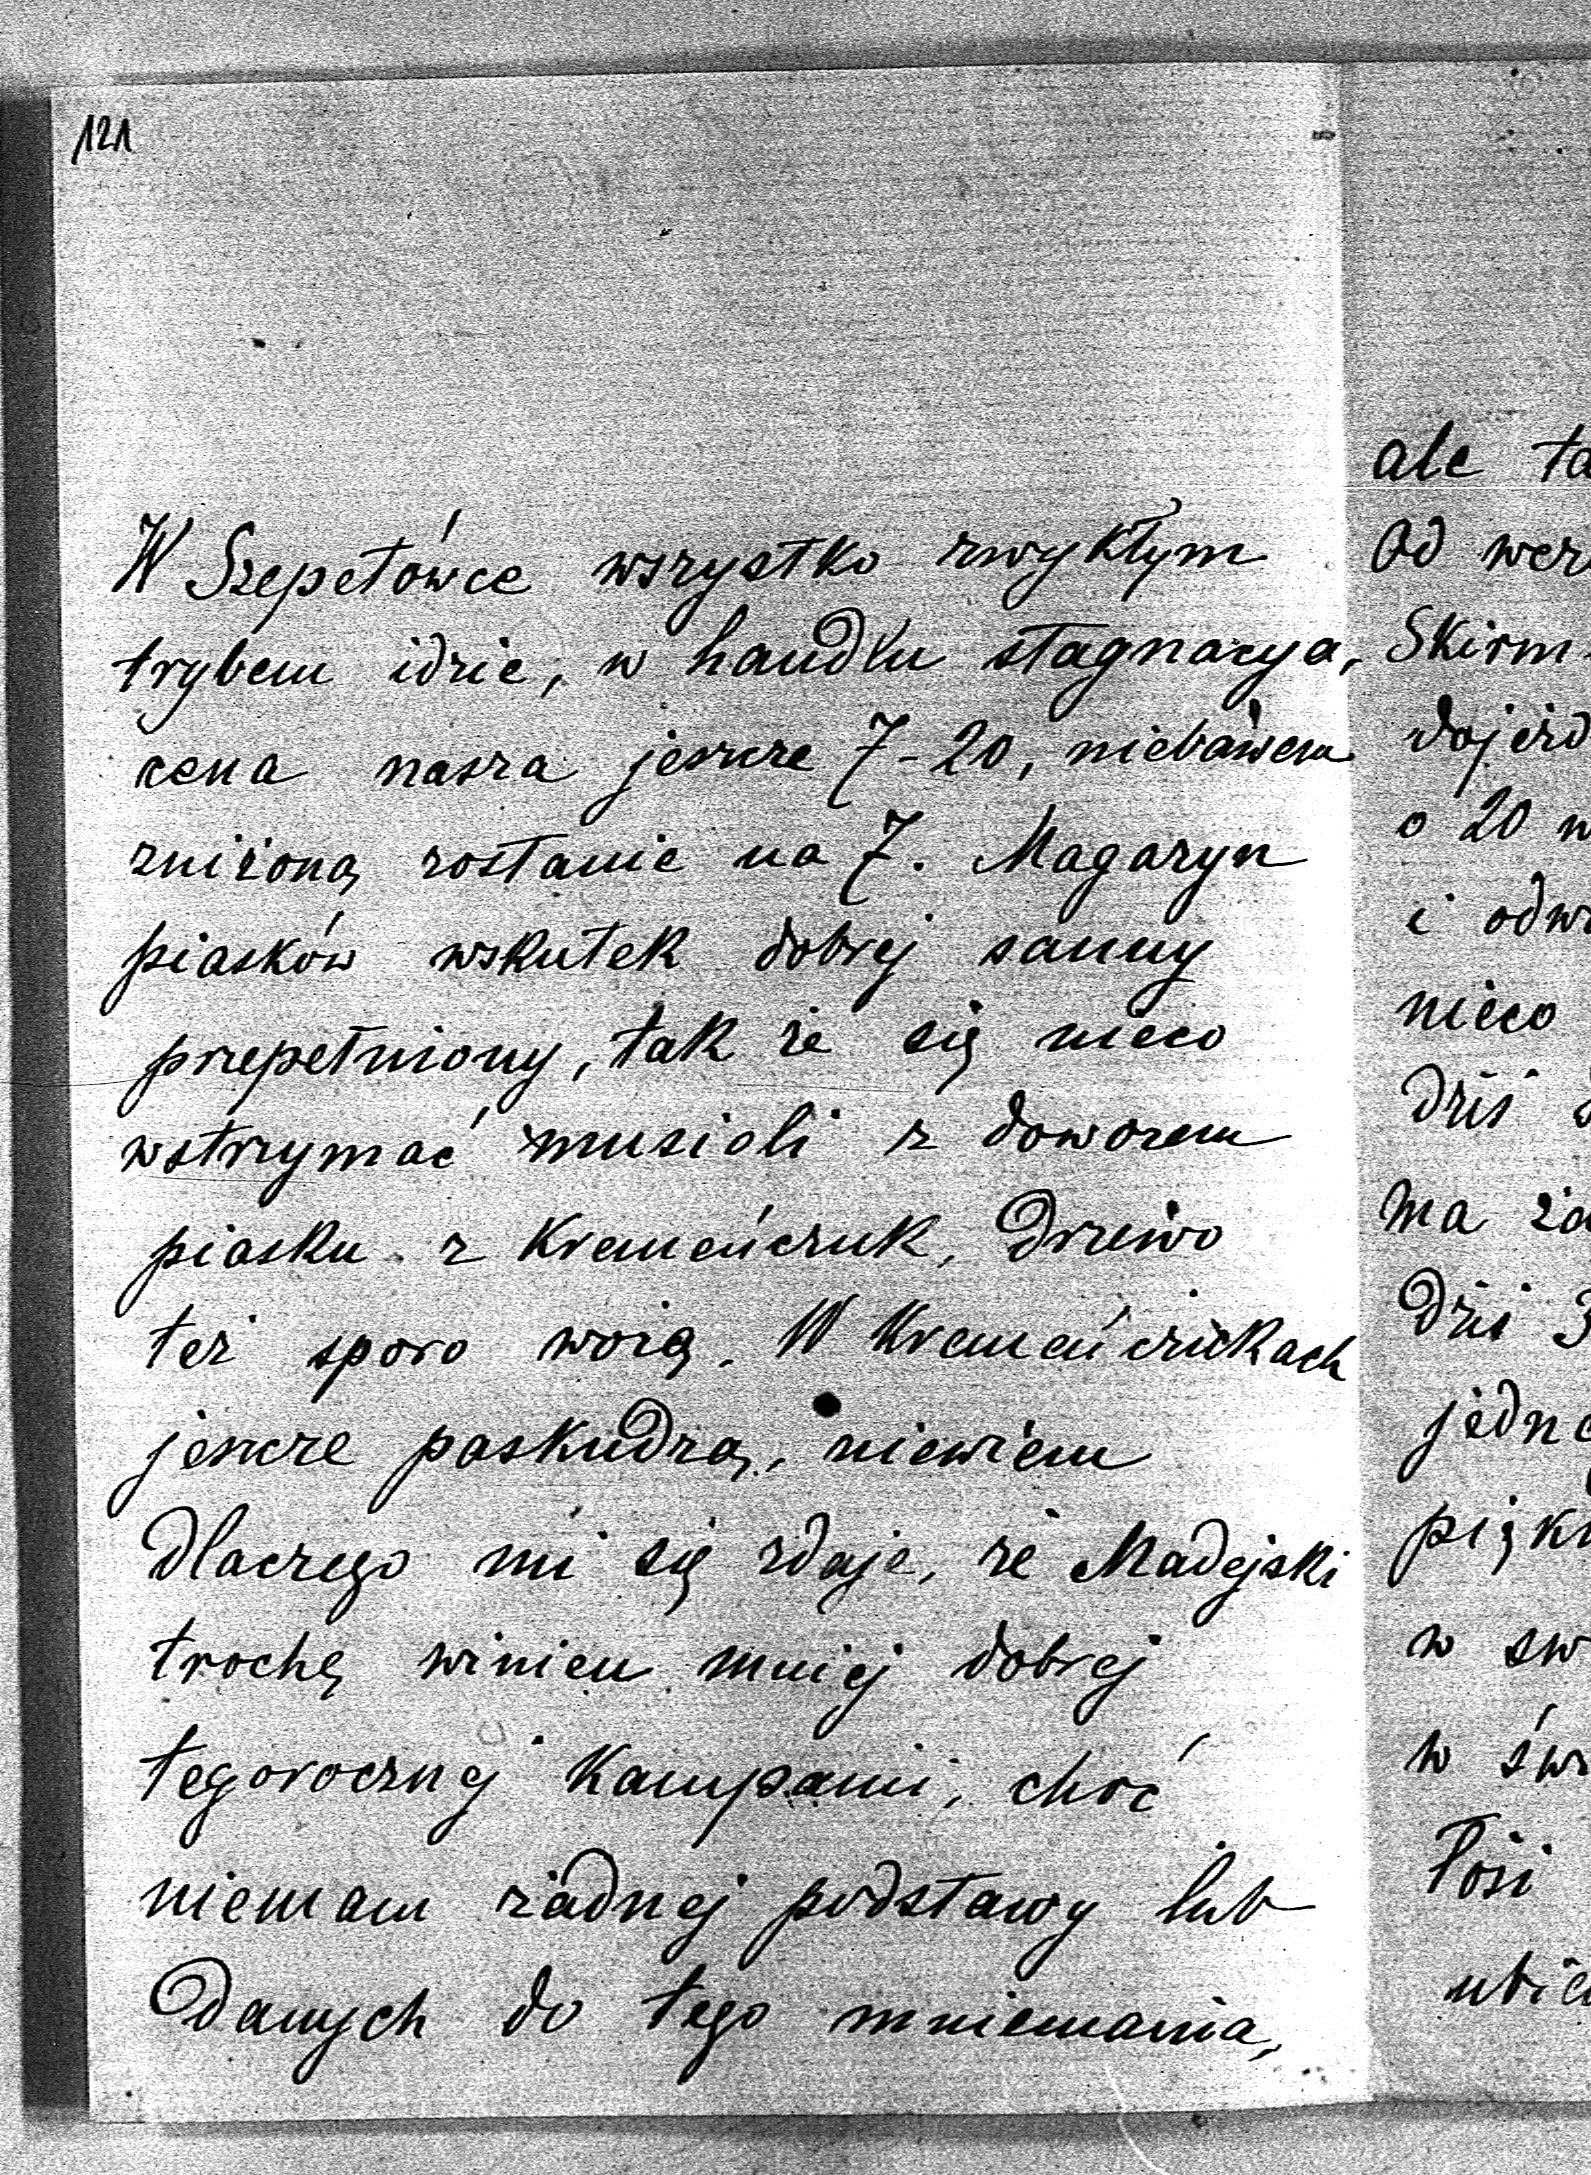 121
W Szepetówce wszystko zwykłym
trybem idzie, w handlu stagnacya,
cena nasza jeszcze 7-20, niebawem
zniżoną zostanie na 7. Magazyn
piasków wskutek dobrej sanny
przepełniony, tak że się nieco
wstrzymać musieli z dowozem
piasku z Kremeńczuk, Drzewo
też sporo wożą. W Kremeńczukach
jeszcze paskudzą, niewiem
dlaczego mi się zdaje, że Madejski
trochę winien mniej dobrej
tegorocznej Kampanii, choć
niemam żadnej podstawy lub
Danych do tego mniemania,
ale ta
Od wcz
Skirm
dojezd
o 20 w
i odw
nieco
Dziś
ma
Dziś 3
jedn
w sw
w świ
Łosi
ubie